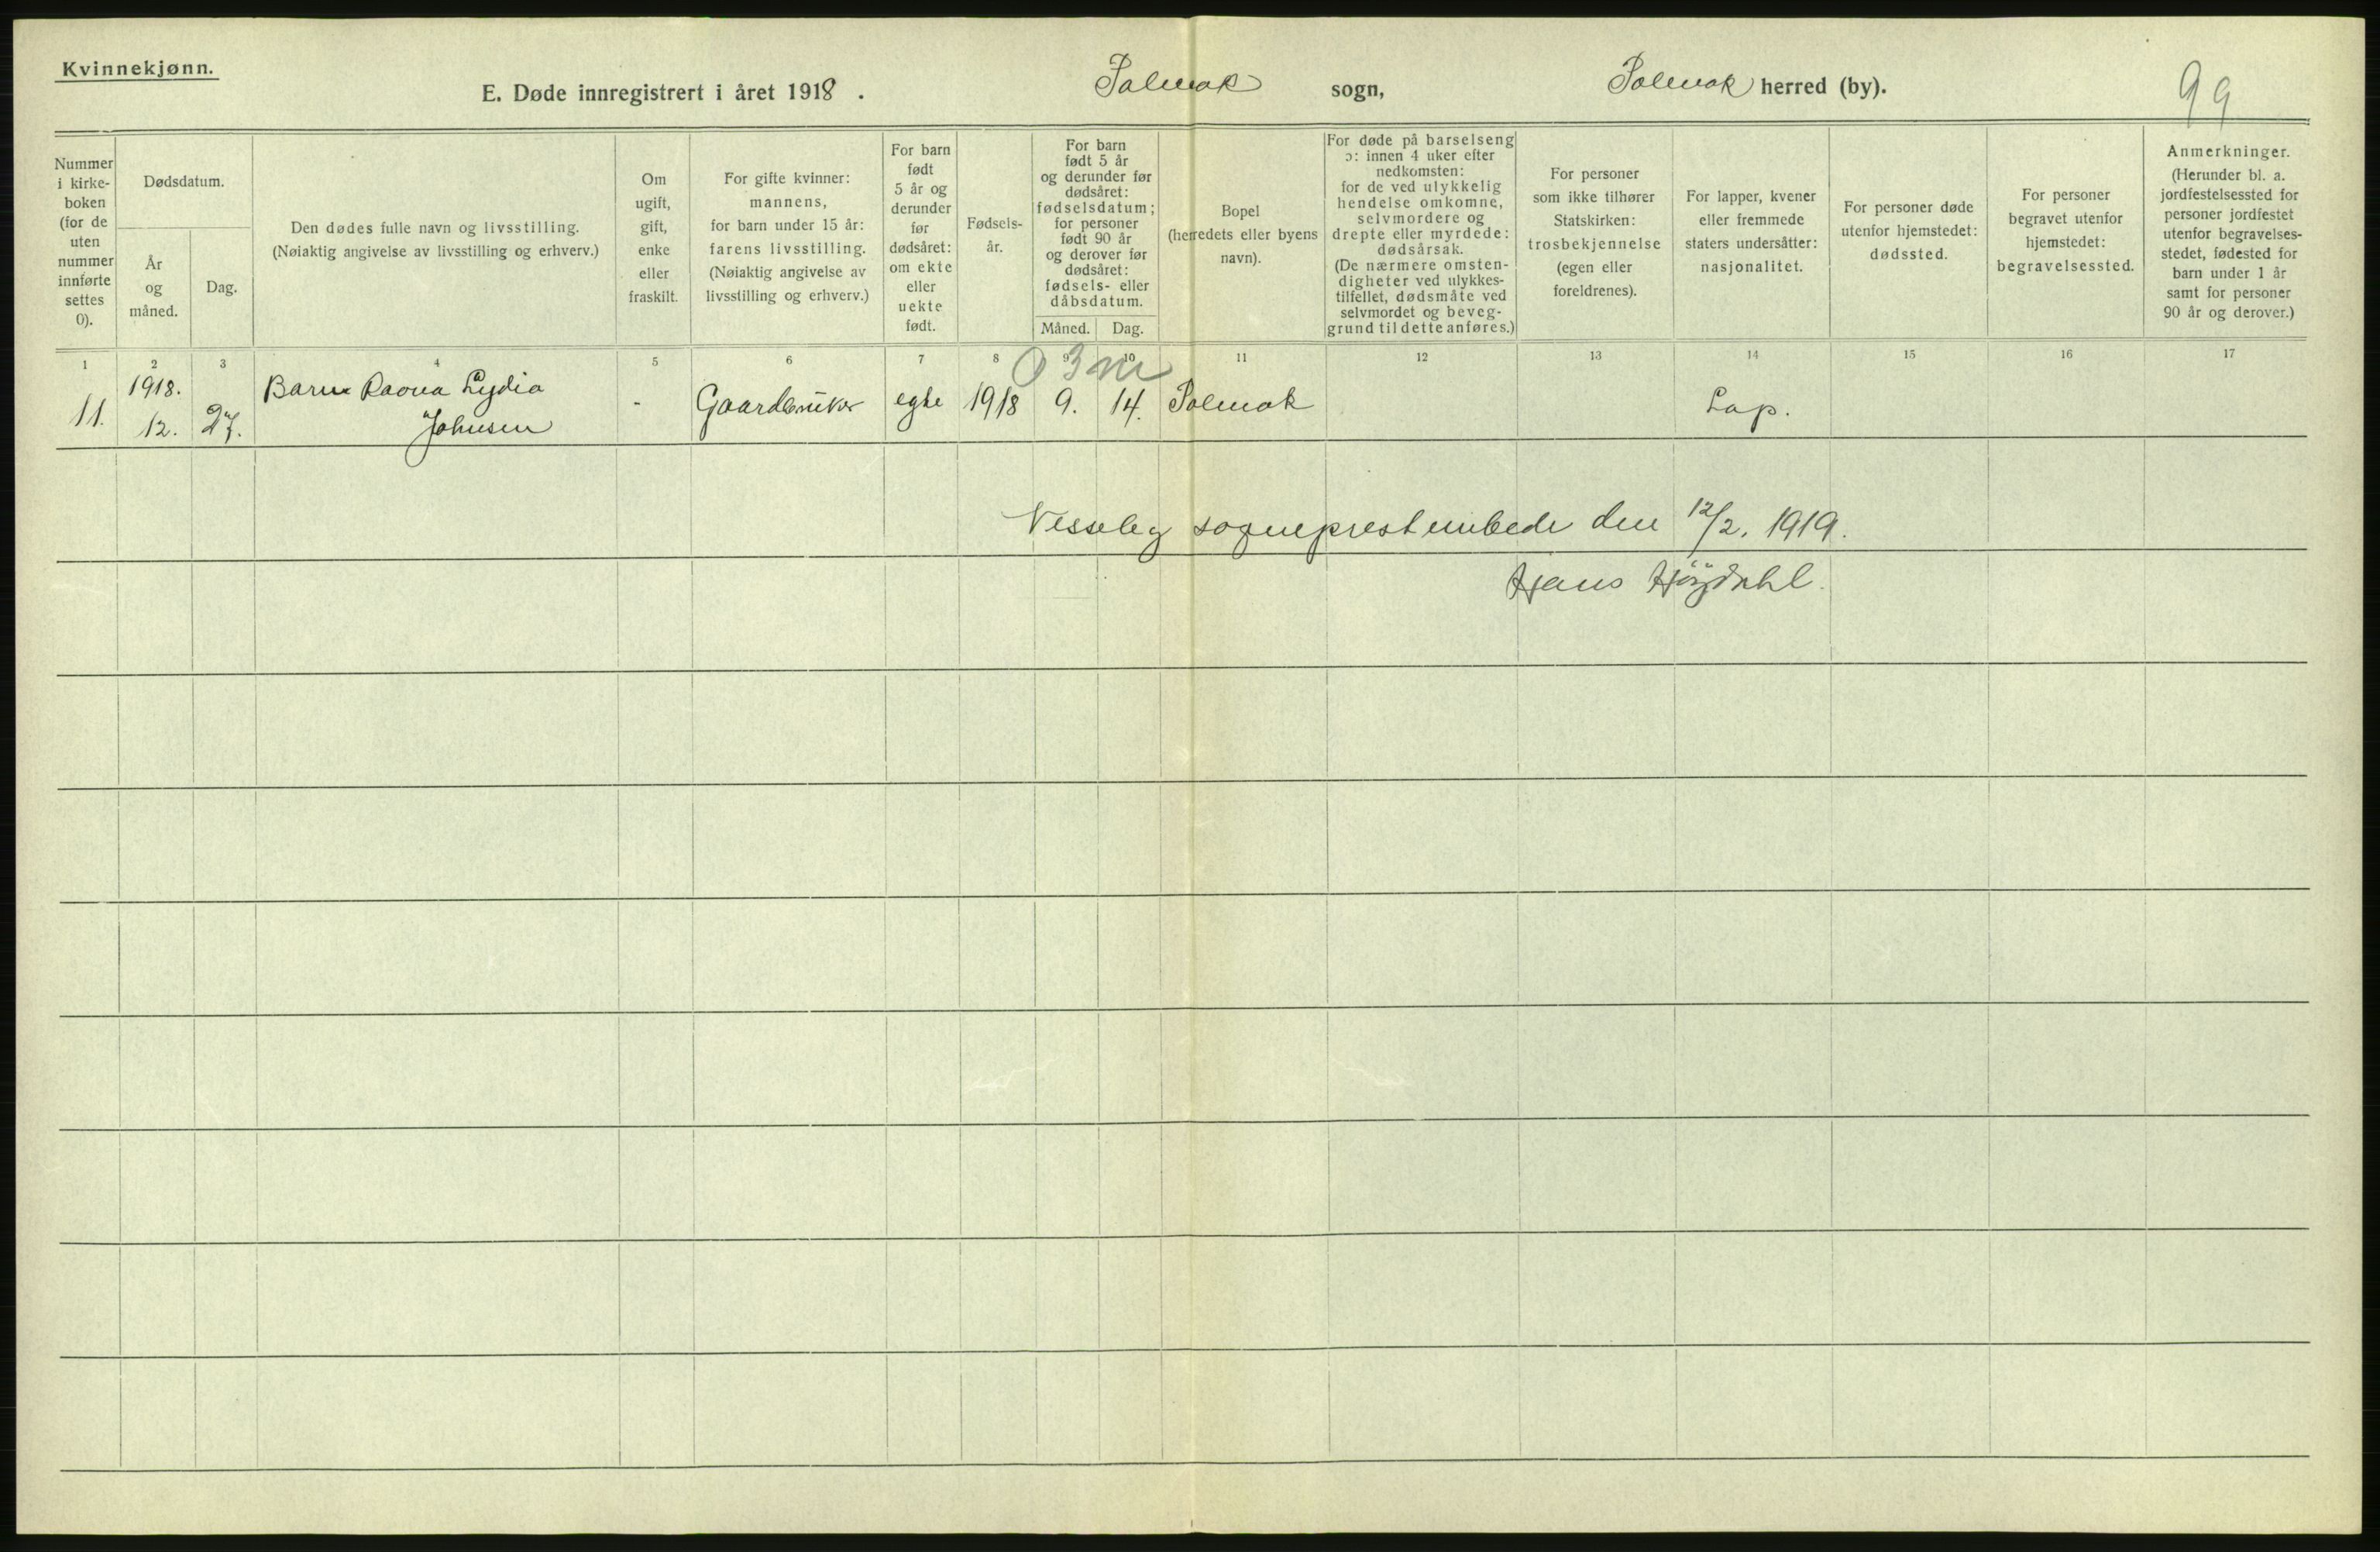 Kvinnekjønn.
E. Døde innregistrert i året 1918. Polmak sogn, Polmak herred (by).
99
Nummer i kirke-boken (for de uten nummer innførte settes 0).
Dødsdatum.
År og måned.
Dag.
Den dødes fulle navn og livsstilling.
(Nøiaktig angivelse av livsstilling og erhverv.)
Om ugift, gift, enke eller fraskilt.
For gifte kvinner: mannens, for barn under 15 år: farens livsstilling.
(Nøiaktig angivelse av livsstilling og erhverv.)
For barn født 5 år og derunder før dødsåret: om ekte eller uekte født.
Fødsels-år.
For barn født 5 år og derunder før dødsåret: fødselsdatum; for personer født 90 år og derover før dødsåret: fødsels- eller dåbsdatum.
Måned. Dag.
Bopel (herredets eller byens navn).
For døde på barselseng ɔ: innen 4 uker efter nedkomsten: for de ved ulykkelig hendelse omkomne, selvmordere og drepte eller myrdede: dødsårsak.
(De nærmere omsten-digheter ved ulykkes-tilfellet, dødsmåte ved selvmordet og beveg-grund til dette anføres.)
For personer som ikke tilhører Statskirken: trosbekjennelse (egen eller foreldrenes).
For lapper, kvener eller fremmede staters undersåtter: nasjonalitet.
For personer døde utenfor hjemstedet: dødssted.
For personer begravet utenfor hjemstedet: begravelsessted.
Anmerkninger.
(Herunder bl. a. jordfestelsessted for personer jordfestet utenfor begravelses-stedet, fødested for barn under 1 år samt for personer 90 år og derover.)
1 2 3 4 5 6 7 8 9 10 11 12 13 14 15 16 17
0 3 m
1918. Barn Ravna Lydia
11. 12. 27. Johnsen - Gaardbruker egte 1918 9. 14. Polmak Lap.
Nesseby sogneprestembede den 12/2. 1919.
Hans Høydahl.